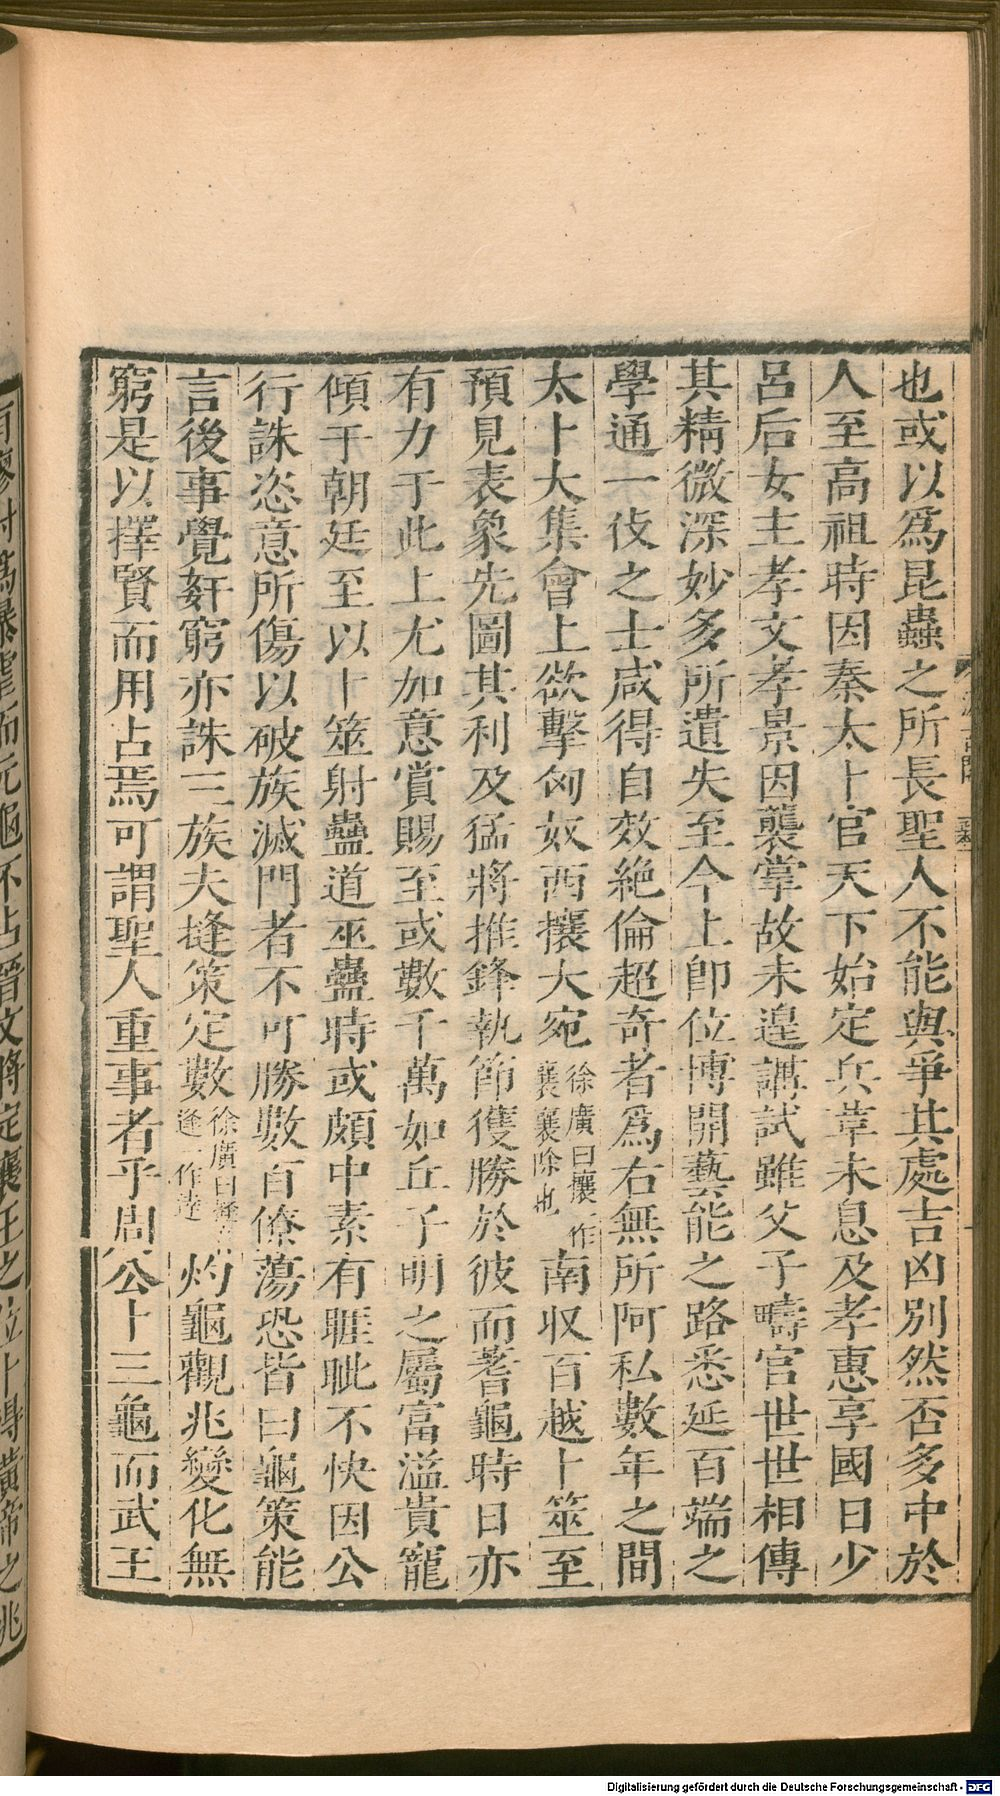 也或以爲昆蟲之所長聖人不能與爭其處吉凶別然否多中於
人至高祖時因秦太卜官天下始定兵革未息及孝惠享國日少
呂后女主孝文孝景因襲掌故未遑講試雖父子疇官世世相傳
其精微深妙多所遺失至今上卽位博開藝能之路悉延百端之
學通一伎之士咸得自效絶倫超奇者爲右無所阿私數年之間
太卜大集會上欲擊匈奴西攘大宛徐廣曰攘一作襄襄除也南収百越卜筮至
預見表象先圖其利及猛將推鋒執節獲勝於彼而蓍龜時日亦
有力于此上尤加意賞賜至或數千萬如丘子明之屬富溢貴寵
傾于朝廷至以卜筮射蠱道巫蠱時或頗中素有睚眦不快因公
行誅恣意所傷以破族滅門者不可勝數百僚蕩恐皆曰龜策能
言後事覺姧窮亦誅三族夫摓策定數徐廣曰摓一作達灼龜觀兆變化無
窮是以擇賢而用占焉可謂聖人重事者乎周公卜三龜而武王
有瘳紂爲暴虐而元龜不占晉文將定襄王之位卜得黃帝之兆
Digitalisierung gefördert durch die Deutsche Forschungsgemeinschaft - DFG